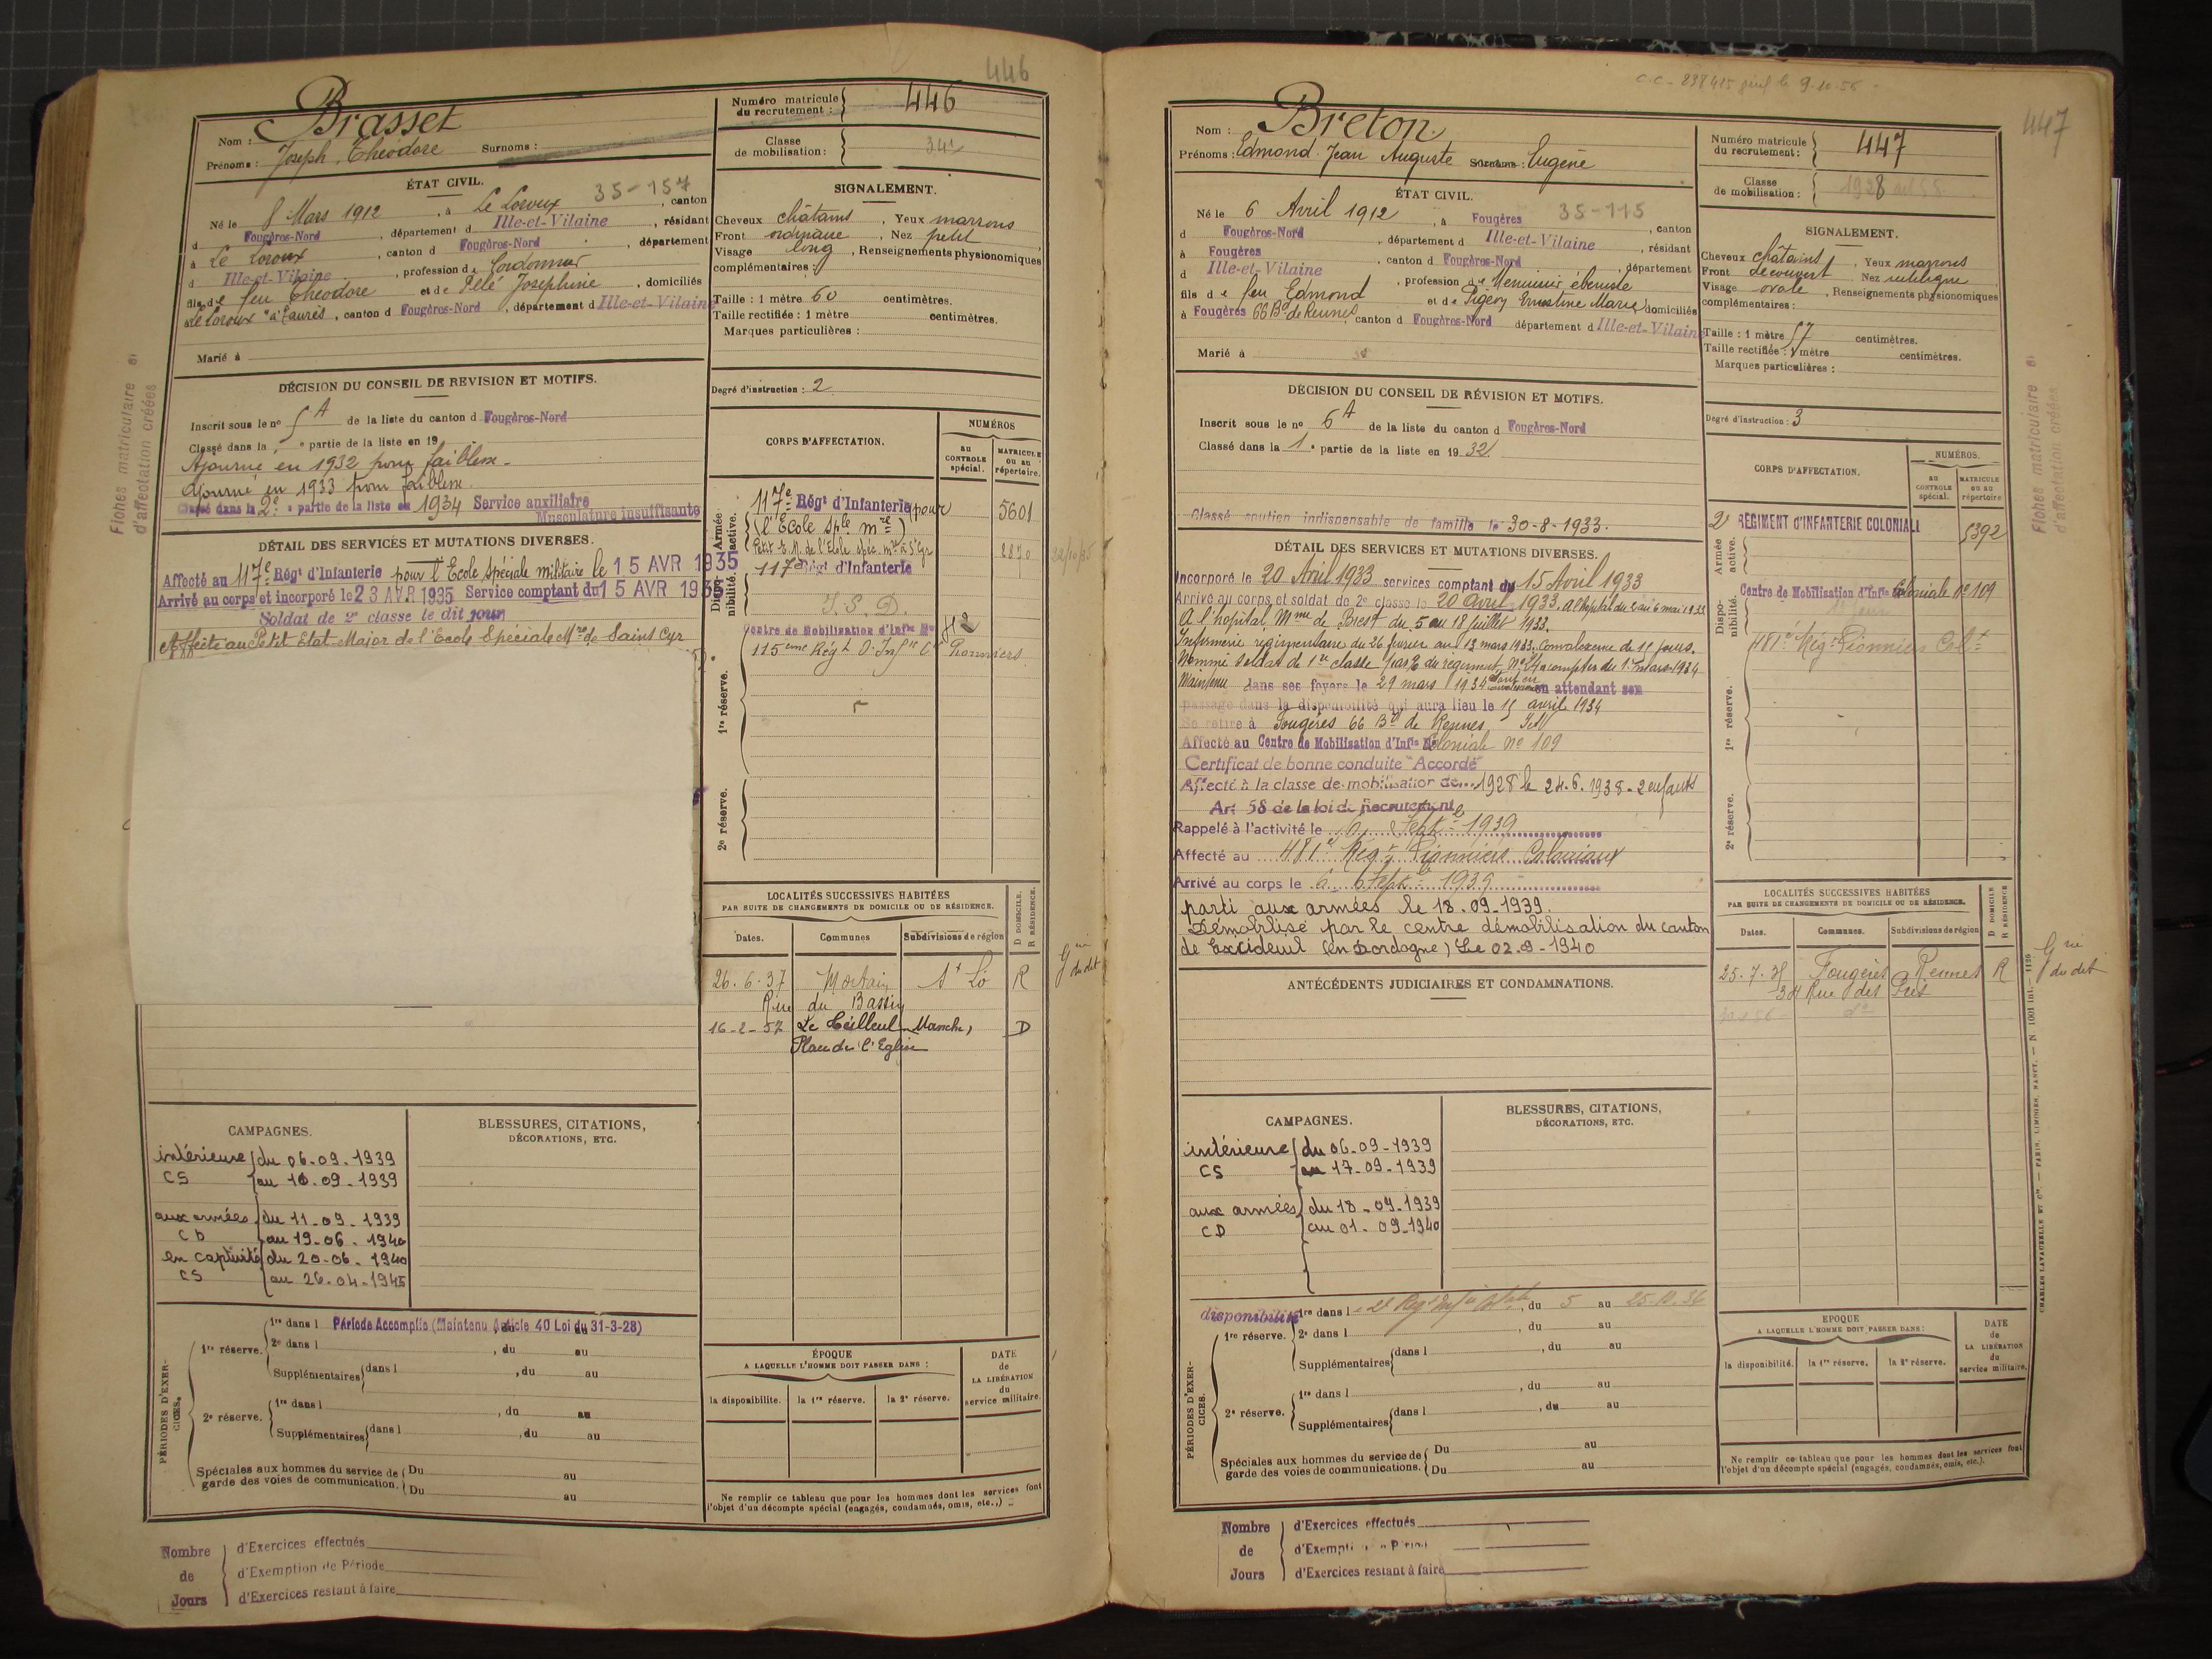 446
Nom : Brasset
Prénoms : Joseph, Théodore Surnoms :
Numéro matricule du recrutement : 446
Classe de mobilisation :
ÉTAT CIVIL. 35-157
Né le 8 Mars 1912, à Le Loroux, canton
d Fougères-Nord, département d Ille-et-Vilaine, résidant
à Le Loroux, canton d Fougères-Nord, département
d Ille-et-Vilaine, profession de Cordonnier
fils de feu Théodore et de Pelé Joséphine, domiciliés
à Le Loroux, canton d Fougères-Nord, département d Ille-et-Vilaine
Marié à
SIGNALEMENT.
Cheveux châtains, Yeux marrons
Front ordinaire, Nez petit
Visage long, Renseignements physionomiques
complémentaires :
Taille : 1 mètre 60 centimètres.
Taille rectifiée : 1 mètre centimètres.
Marques particulières :
Degré d'instruction : 2
DÉCISION DU CONSEIL DE REVISION ET MOTIFS.
Inscrit sous le no 5 A de la liste du canton d Fougères-Nord
Classé dans la e partie de la liste en 19
Ajourné en 1932 pour faiblesse
Ajourné en 1933 pour faiblesse
Classé dans la 2e partie de la liste en 1934 Service auxiliaire
Musculature insuffisante
DÉTAIL DES SERVICES ET MUTATIONS DIVERSES.
Affecté au 117e Régt d'Infanterie pour l'Ecole spéciale militaire le 15 AVR 1935
Arrivé au corps et incorporé le 23 AVR 1935 Service comptant du 15 AVR 1935
Soldat de 2e classe le dit jour
Affecté au Petit Etat-Major de l'Ecole Spéciale Mre de Saint Cyr
CORPS D'AFFECTATION.
NUMÉROS
au CONTROLE spécial.
MATRICULE ou au répertoire.
Armée active.
117e Régt d'Infanterie (pour 5601
(l'Ecole sple mre)
Petit E.M. de l'Ecole spéc. mre à St Cyr 2870 22/10/35
Disponibilité.
117e Régt d'Infanterie
I. S. D.
Centre de Mobilisation d'Infie No 42
115eme Régt Pionniers
1re réserve.
2e réserve.
LOCALITÉS SUCCESSIVES HABITÉES
PAR SUITE DE CHANGEMENTS DE DOMICILE OU DE RÉSIDENCE.
D DOMICILE. R RÉSIDENCE.
Dates. Communes Subdivisions de région
26.6.37 Mortain St Lô R Gie du dit
Rue du Bassin
16-2-57 Le Teilleul Manche, D
Place de l'Eglise
CAMPAGNES.
BLESSURES, CITATIONS, DÉCORATIONS, ETC.
intérieure du 06-09-1939
CS au 10-09-1939
aux armées du 11-09-1939
CD au 19-06-1940
en captivité du 20-06-1940
CS au 26-04-1945
PÉRIODES D'EXERCICES.
1re réserve. 1re dans l Période Accomplie (Maintenu Article 40 Loi du 31-3-28)
2e dans l , du au
Supplémentaires dans l , du au
2e réserve. 1re dans l , du au
Supplémentaires dans l , du au
Spéciales aux hommes du service de garde des voies de communication. Du au
Du au
ÉPOQUE
A LAQUELLE L'HOMME DOIT PASSER DANS :
DATE de LA LIBÉRATION du service militaire.
la disponibilité. la 1re réserve. la 2e réserve.
Ne remplir ce tableau que pour les hommes dont les services font
l'objet d'un décompte spécial (engagés, condamnés, omis, etc.,)
Nombre de Jours
d'Exercices effectués
d'Exemption de Période
d'Exercices restant à faire
Fiches matriculaire et
d'affectation créées
447
Nom : Breton
Prénoms : Edmond Jean Auguste Surnoms : Eugène
Numéro matricule du recrutement : 447
Classe de mobilisation : 1928
ÉTAT CIVIL. 35-115
Né le 6 Avril 1912, à Fougères, canton
d Fougères-Nord, département d Ille-et-Vilaine, résidant
à Fougères, canton d Fougères-Nord, département
d Ille-et-Vilaine, profession de Menuisier ébéniste
fils de feu Edmond et de Pigeon Ernestine Marie domiciliés
à Fougères 66 Bd de Rennes, canton d Fougères-Nord département d Ille-et-Vilaine
Marié à
SIGNALEMENT.
Cheveux châtains, Yeux marrons
Front découvert Nez rectiligne
Visage ovale, Renseignements physionomiques
complémentaires :
Taille : 1 mètre 57 centimètres.
Taille rectifiée : 1 mètre centimètres.
Marques particulières :
Degré d'instruction : 3
DÉCISION DU CONSEIL DE RÉVISION ET MOTIFS.
Inscrit sous le no 6 A de la liste du canton d Fougères-Nord
Classé dans la 1e partie de la liste en 1932
Classé soutien indispensable de famille le 30-8-1933.
DÉTAIL DES SERVICES ET MUTATIONS DIVERSES.
Incorporé le 20 Avril 1933 services comptant du 15 Avril 1933
Arrivé au corps et soldat de 2e classe le 20 avril 1933. A l'hôpital du 2 au 6 mai 1933
A l'hôpital Mme de Brest du 5 au 18 juillet 1933.
Infirmerie régimentaire du 26 février au 13 mars 1933. Convalescence de 15 jours.
Nommé soldat de 1re classe du régiment No 24 à compter du 1er mars 1934
Maintenu dans ses foyers le 29 mars 1934 en attendant son
passage dans la disponibilité qui aura lieu le 15 avril 1934
Se retire à Fougères 66 Bd de Rennes I&V
Affecté au Centre de Mobilisation d'Infie Coloniale No 109
Certificat de bonne conduite "Accordé"
Affecté à la classe de mobilisation de 1928 le 24.6.1938 - 2 enfants
Art 58 de la loi de Recrutement
Rappelé à l'activité le 6 Septe 1939
Affecté au 481e Régt Pionniers Coloniaux
Arrivé au corps le 6 Septe 1939
parti aux armées le 18-09-1939.
Démobilisé par le centre démobilisation du canton
de Excideuil (en Dordogne) Le 02-9-1940
ANTÉCÉDENTS JUDICIAIRES ET CONDAMNATIONS.
CORPS D'AFFECTATION.
NUMÉROS.
au CONTROLE spécial.
MATRICULE ou au répertoire
Armée active.
2e RÉGIMENT D'INFANTERIE COLONIALE 5392
Disponibilité.
Centre de Mobilisation d'Infie Coloniale No 109
481e Régt Pionniers Colx
1re réserve.
2e réserve.
LOCALITÉS SUCCESSIVES HABITÉES
PAR SUITE DE CHANGEMENTS DE DOMICILE OU DE RÉSIDENCE.
D DOMICILE R RÉSIDENCE
Dates. Communes. Subdivisions de région
25-7-35 Fougères Rennes R Gie du dit
34 Rue des Prés
CAMPAGNES.
BLESSURES, CITATIONS, DÉCORATIONS, ETC.
intérieure du 06-09-1939
CS au 17-09-1939
aux armées du 18-09-1939
CD au 01-09-1940
PÉRIODES D'EXERCICES.
disponibilité 1re dans l e 2e Régt Infie Cole, du 5 au 25-10-36
1re réserve. 2e dans l , du au
Supplémentaires dans l , du au
2e réserve. 1re dans l , du au
Supplémentaires dans l , du au
Spéciales aux hommes du service de garde des voies de communications. Du au
Du au
EPOQUE
A LAQUELLE L'HOMME DOIT PASSER DANS :
DATE de LA LIBÉRATION du service militaire.
la disponibilité. la 1re réserve. la 2e réserve.
Ne remplir ce tableau que pour les hommes dont les services font
l'objet d'un décompte spécial (engagés, condamnés, omis, etc.).
Nombre de Jours
d'Exercices effectués
d'Exemption de Période
d'Exercices restant à faire
Fiches matriculaire et
d'affectation créées
CHARLES-LAVAUZELLE ET Cie. — PARIS, LIMOGES, NANCY. — N 1001 int. — 1126